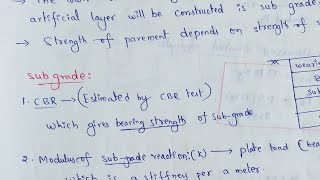 artificial layer will be constructed is sub grade
→ Strength of pavement depends on strength of s
Sub grade:
1. CBR → (Estimated by CBR test)
which gives bearing strength of sub-grade
2. Modulus of sub-grade reaction: (K) → plate load (be
which is a stiffney per a meter.
wearin
B